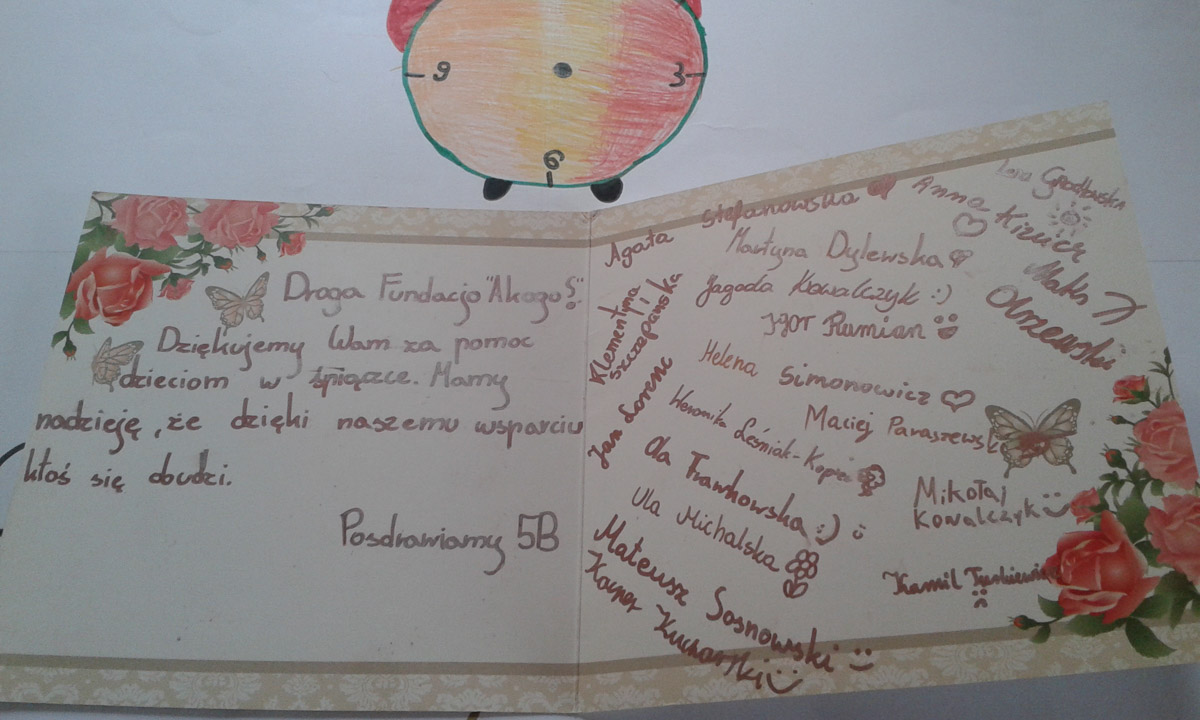 9
3
6
Droga Fundacjo "Akogo?"
Dziękujemy Wam za pomoc
dzieciom w śpiączce. Mamy
nadzieję, że dzięki naszemu wsparciu
ktoś się obudzi.
Pozdrawiamy 5B
Agata Stefanowska
Anna
Martyna Dylewska
Klementyna
Szczepańska
Jagoda Kowalczyk :)
Igor Rumian
Olszewski
Helena Simonowicz
Jan Lorenc
Weronika Leśniak-
Maciej
Ola
Ula Michalska
Mikołaj
Kowalczyk
Mateusz Sosnowski
Kacper Kucharski
Kamil